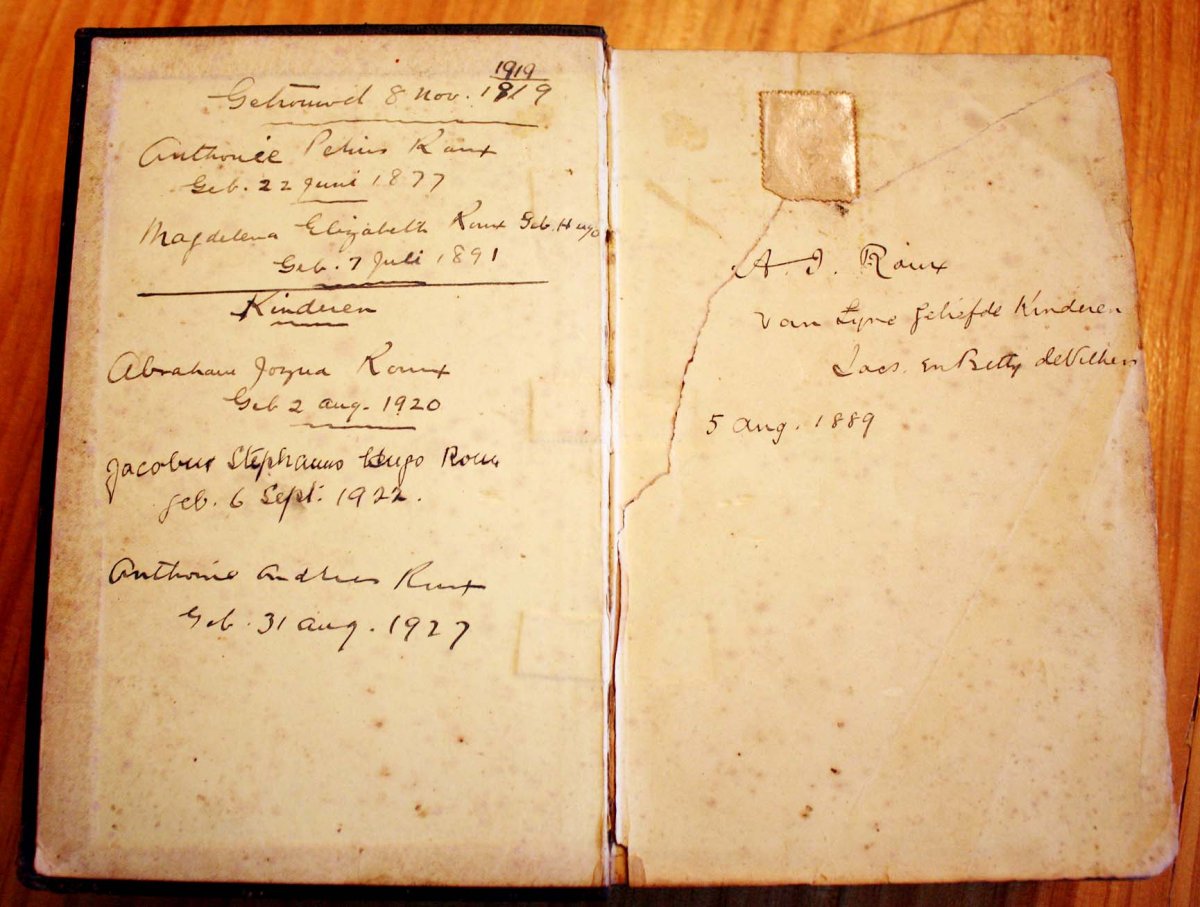 1919
Getrouwd 8 Nov. 1919
Anthonie Petrus Roux
Geb. 22 Juni 1877
Magdelena Elizabeth Roux Geb. Hugo
Geb. 7 Juli 1891
Kinderen
Abraham Jozua Roux
Geb 2 aug. 1920
Jacobus Stephanus Hugo Roux
geb. 6 Sept. 1922.
Anthonie Andries Roux
Geb. 31 aug. 1927
A. J. Roux
van Zyne geliefde Kinderen
en Betty de Villiers
5 aug. 1889